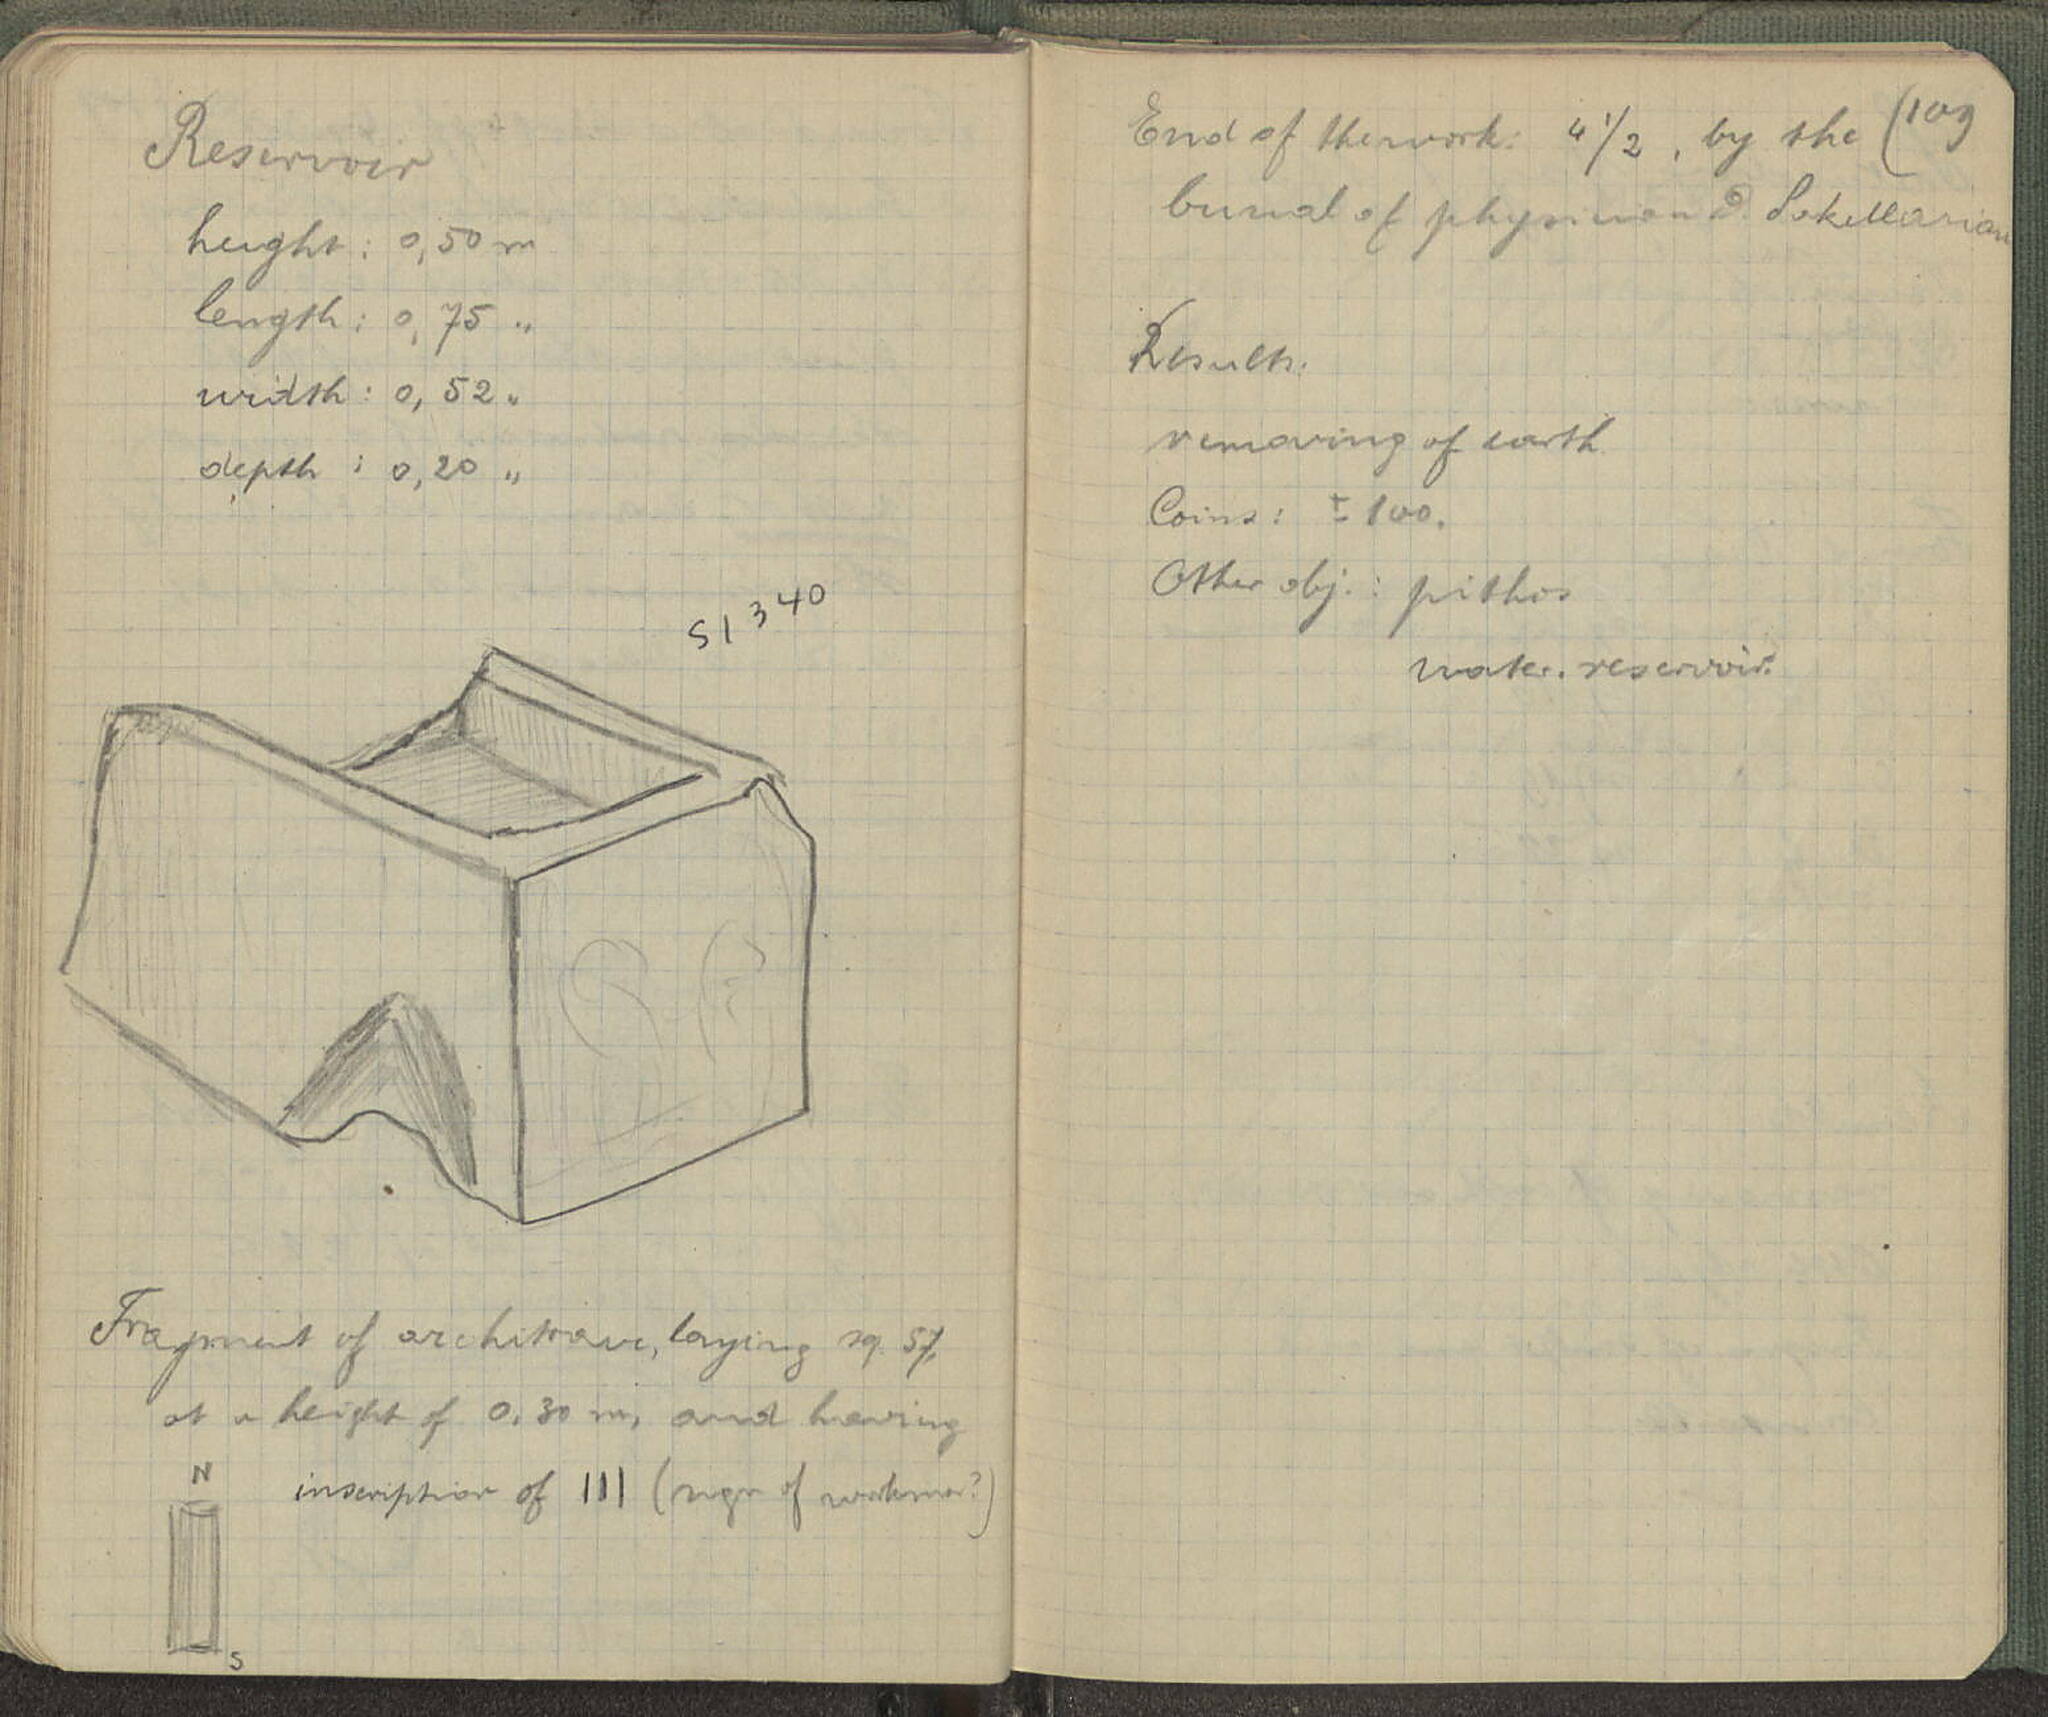 Reservoir
height: 0,50 m
length: 0,75 "
width: 0,52 "
depth: 0,20 "
S1340
Fragment of architrave, laying sq. 57,
at a height of 0.30 m, and having
inscription of III (sign of workman?)
N
S
(109
End of the work: 4 1/2, by the
burial of physician D. Sakellariou
Results:
removing of earth
Coins: ± 100.
Other obj.: pithos
water. reservoir.